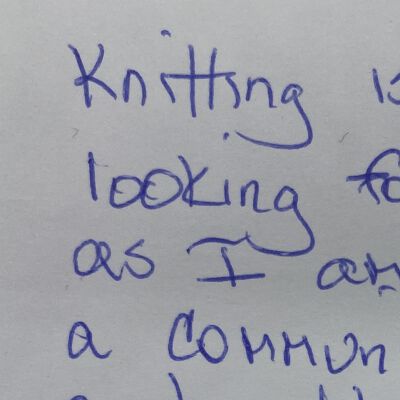 Knitting is
looking fo
as I am
a common